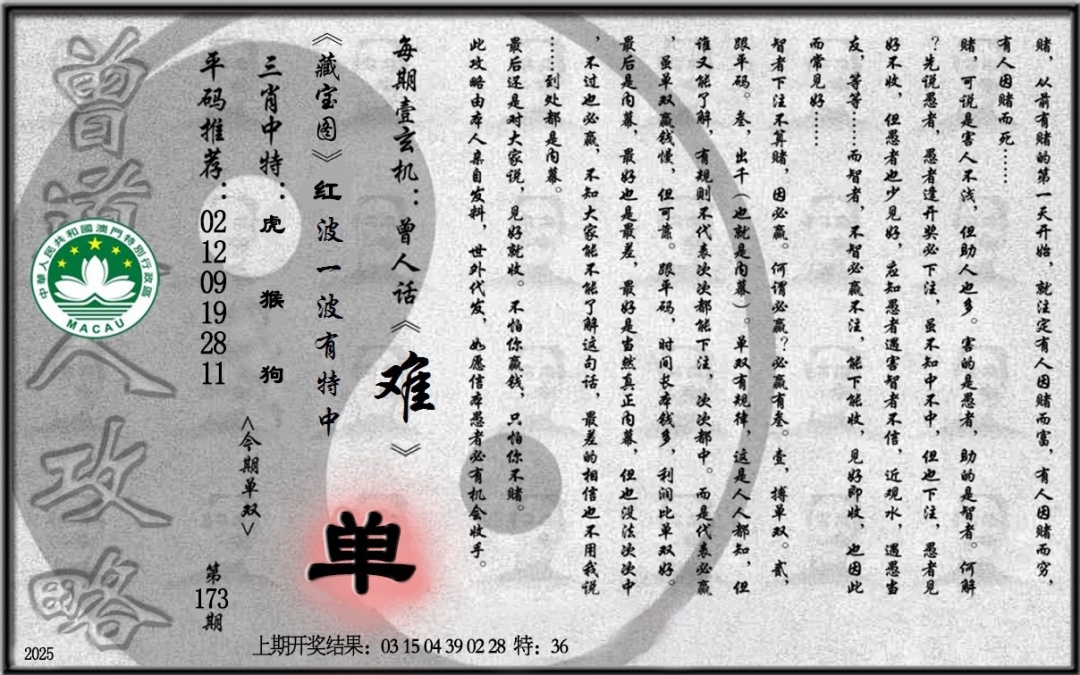 赌，从前有赌的第一天开始，就注定有人因赌而富，有人因赌而穷，
有人因赌而死……
赌，可说是害人不浅，但助人也多。害的是愚者，助的是智者。何解
？先说愚者，愚者逢开奖必下注，虽不知中不中，但也下注，愚者见
好不收，但愚者也少见好，应知愚者遇害智者不信，近观水，遇愚当
友，等等……而智者，不智必赢不注，能下能收，见好即收，也因此
而常见好……
智者下注不算赌，因必赢。何谓必赢？必赢有叁。壹，搏单双。贰，
跟平码。叁，出千（也就是内幕）。单双有规律，这是人人都知，但
谁又能了解，有规则不代表次次都能下注，次次都中。而是代表必赢
，虽单双赢钱慢，但可靠。跟平码，时间长本钱多，利润比单双好。
最后是内幕，最好也是最差，最好是当然真正内幕，但也没法次次中
，不过也必赢，不知大家能不能了解这句话，最差的相信也不用我说
……到处都是内幕。
最后还是对大家说，见好就收。不怕你赢钱，只怕你不赌。
此攻略由本人亲自发料，世外代发，如愿信本愚者必有机会收手。
每期壹玄机：曾人话《难》
《藏宝图》红波一波有特中
单
三肖中特：虎 猴 狗
<今期单双>
平码推荐：02 12 09 19 28 11
第173期
曾道人攻略
中華人民共和國澳門特別行政區
MACAU
2025
上期开奖结果：03 15 04 39 02 28 特：36